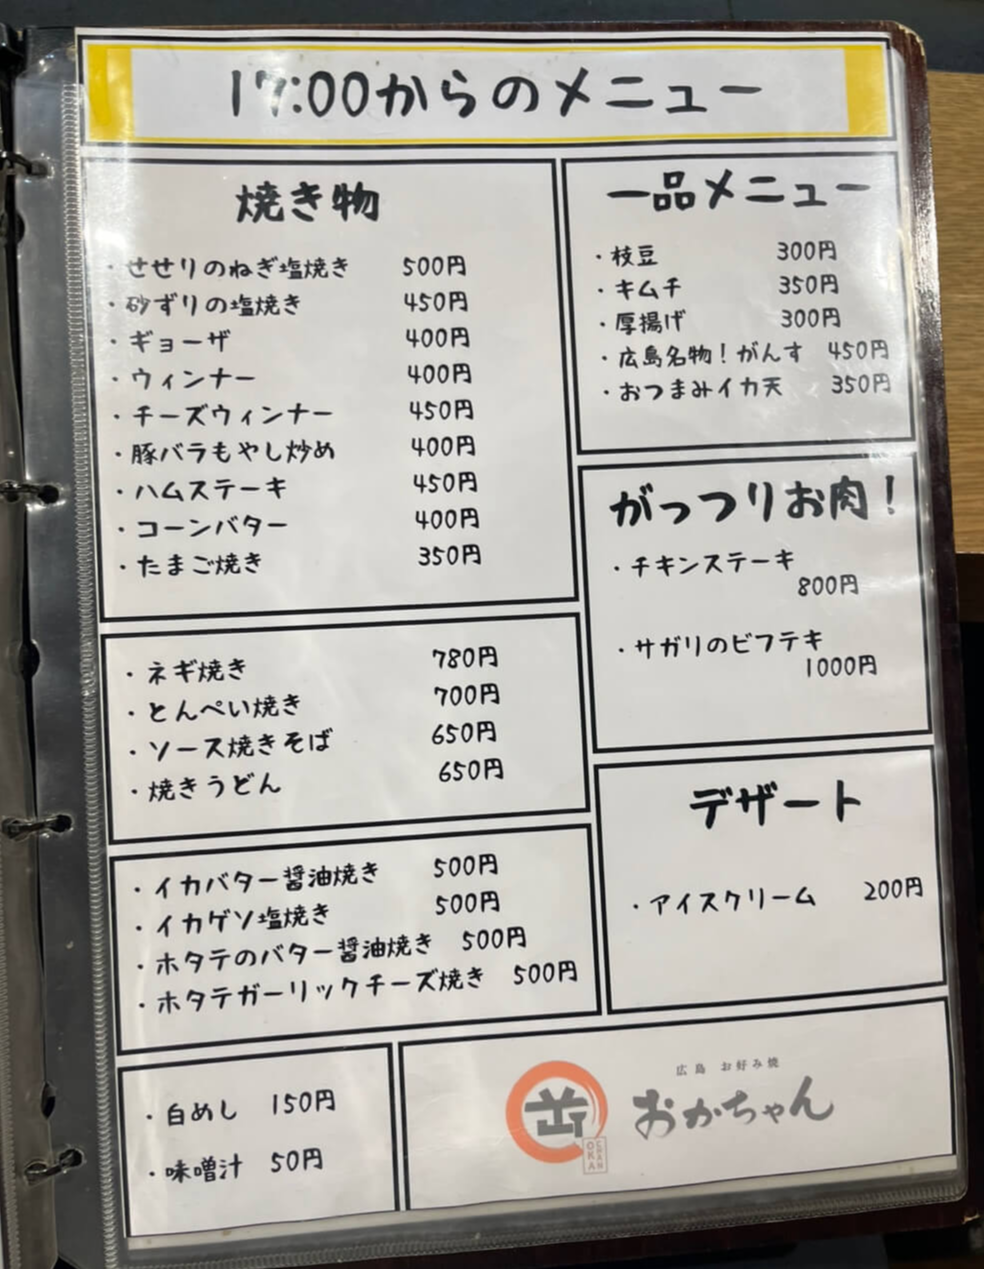 17:00からのメニュー
焼き物
・せせりのねぎ塩焼き 500円
・砂ずりの塩焼き 450円
・ギョーザ 400円
・ウィンナー 400円
・チーズウィンナー 450円
・豚バラもやし炒め 400円
・ハムステーキ 450円
・コーンバター 400円
・たまご焼き 350円
・ネギ焼き 780円
・とんぺい焼き 700円
・ソース焼きそば 650円
・焼きうどん 650円
・イカバター醤油焼き 500円
・イカゲソ塩焼き 500円
・ホタテのバター醤油焼き 500円
・ホタテガーリックチーズ焼き 500円
・白めし 150円
・味噌汁 50円
一品メニュー
・枝豆 300円
・キムチ 350円
・厚揚げ 300円
・広島名物!がんす 450円
・おつまみイカ天 350円
がっつりお肉!
・チキンステーキ
800円
・サガリのビフテキ
1000円
デザート
・アイスクリーム 200円
広島 お好み焼
おかちゃん
OKA
CHAN